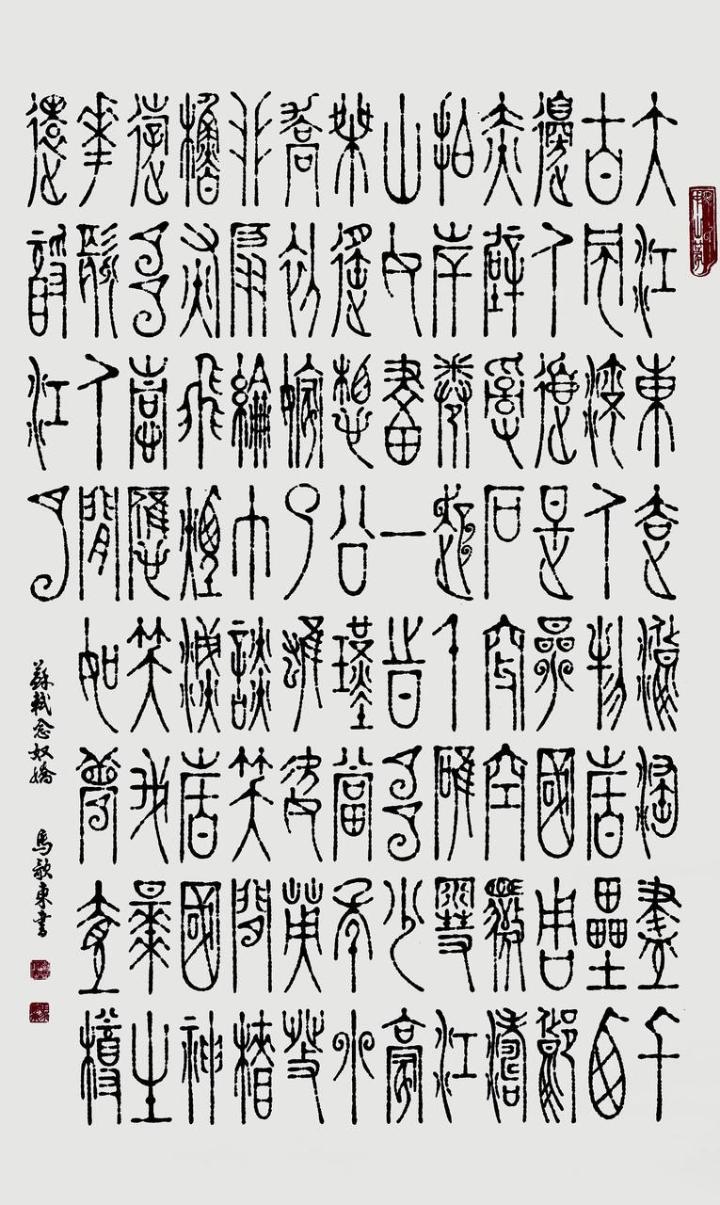 大江東去浪淘盡千
古風流人物故壘西
邊人道是三國周郎
赤壁亂石穿空驚濤
拍岸捲起千堆雪江
山如畫一時多少豪
傑遙想公瑾當年小
喬初嫁了雄姿英發
羽扇綸巾談笑間檣
櫓灰飛煙滅故國神
遊多情應笑我早生
華髮人間如夢壹樽
還酹江月
蘇軾念奴嬌 馬東書